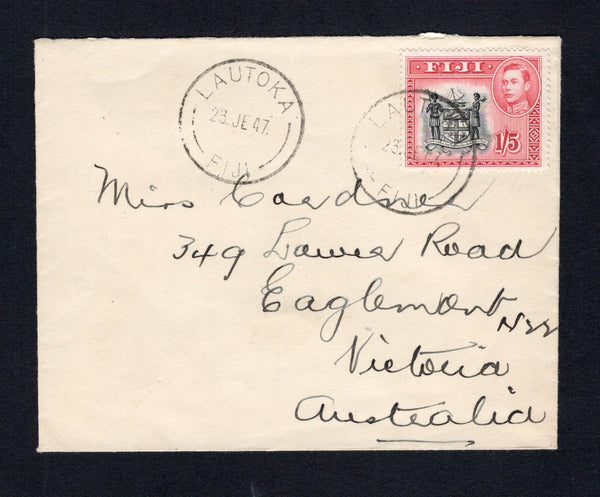 LAUTOKA
23. JE 47.
FIJI
FIJI
1/5
LAUTOKA
23.
FIJI
Miss
349 Lower Road
Eaglemont
N22
Victoria
Australia